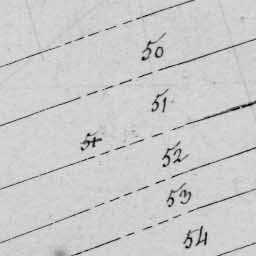 50
51
52
53
54